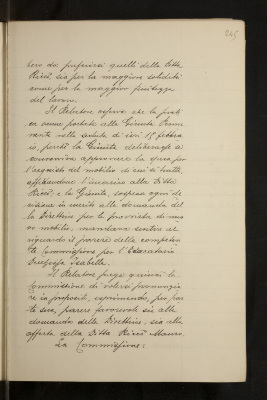 245
bero da preferirsi quelli della Ditta
Ricco, sia per la maggiore solidità
come per la maggior finitezza
del lavoro.
Il Relatore espone che la prati
ca venne portata alla Giunta Perma
nente nella seduta di ieri 15 febbra
io, perchè la Giunta deliberasse o
convenisse approvare la spesa per
l'acquisto del mobilio di cui si tratta,
affidandone l'incarico alla Ditta
Ricco, e la Giunta, sospesa ogni de
cisione in merito alla domanda del
la Direttrice per la provvista di nuo
vo mobilio, mandava sentirsi al
riguardo il parere della competen
te Commissione per l'Educatorio
Duchessa Isabella.
Il Relatore prega quindi la
Commissione di volersi pronunzia
re in proposito, esprimendo, per par
te sua, parere favorevole sia alla
domanda della Direttrice, sia alla
offerta della Ditta Ricco Mauro.
La Commissione: